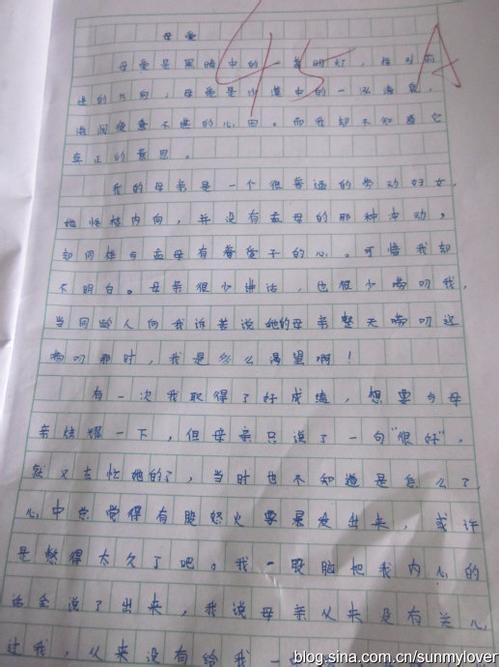 母爱
45 A
母爱是黑暗中的一盏明灯,指引前
进的方向,母爱是沙漠中的一泓清泉,
滋润疲惫不堪的心田。而我却不知道它
真正的意思。
我的母亲是一个很普通的劳动妇女,
她性格内向,并没有孟母的那种出动,
却同样与孟母有着爱子的心。可惜我却
不明白。母亲很少讲话,也很少唠叨我,
当同龄人向我诉苦说她的母亲整天唠叨这
唠叨那时,我是多么渴望啊!
有一次我取得了好成绩,想要与母
亲炫耀一下,但母亲只说了一句“很好”,
然又去忙她的了,当时也不知道是怎么了
心中总觉得有股怒火要暴发出来,或许
是憋得太久了吧。我一股脑把我内心的
话全说了出来,我说母亲从来没有关心
过我,从来没有给我一
blog.sina.com.cn/sunmylover